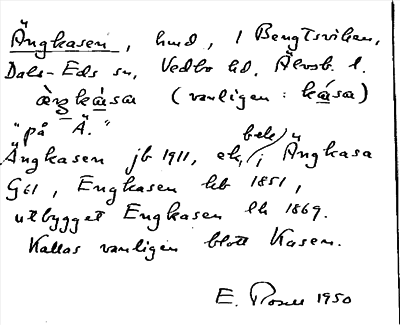 Ängkasen, hmd, i Bengtsviken,
Dals-Eds sn, Vedbo hd, Älvsb. l.
àŋkàsa (vanligen: kása)
"på Ä."
Ängkasen jb 1911, ek, bek i Ängkasa
GEK, Engkasen kb 1851,
utbygget Engkasen lh 1869.
Kallas vanligen blott Kasen.
E. 1950